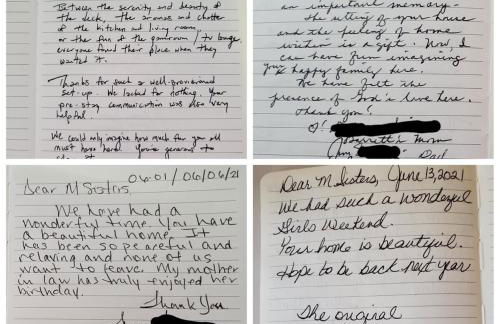 Between the serenity and beauty of
the deck, the aromas and chatter
of the kitchen and living room,
or the fun of the gameroom / tv lounge,
everyone found their place when they
wanted it.
Thanks for such a well-provisioned
set-up. We lacked for nothing. Your
pre-stay communication was also very
helpful.
We could only imagine how much fun you all
must have here. You're generous to
an important memory.
The setting of your house
and the feeling of home
within is a gift. Now, I
can have fun imagining
your happy family here.
We have felt the
presence of God's love here.
Thank you!
Mom
Dad
06/01/06/06/21
Dear M Sisters,
We hope had a
wonderful time. You have
a beautiful home. It
has been so peaceful and
relaxing and none of us
want to leave. My mother
in law has truly enjoyed her
birthday.
Thank You
Dear M Sisters, June 13, 2021
We had such a wonderful
Girls Weekend.
Your home is beautiful.
Hope to be back next year
The original